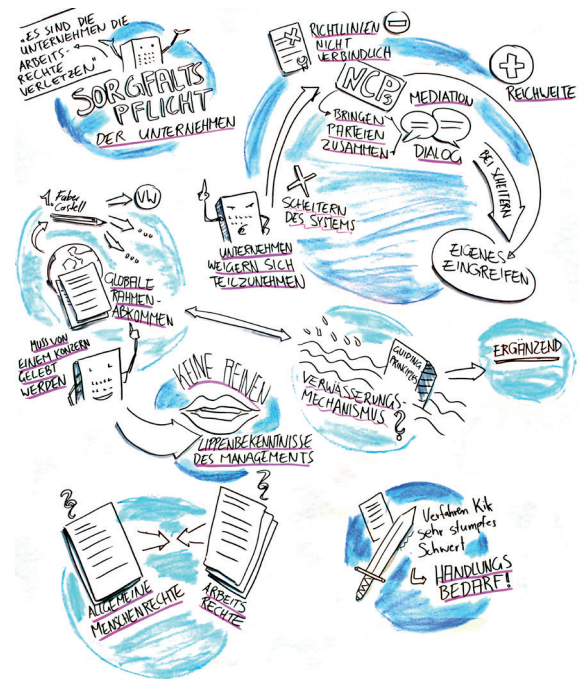 „ES SIND DIE
UNTERNEHMEN DIE
ARBEITS-
RECHTE
VERLETZEN"
SORGFALTS
PFLICHT
DER UNTERNEHMEN
RICHTLINIEN
NICHT
VERBINDLICH
NCPs
MEDIATION
BRINGEN
PARTEIEN
ZUSAMMEN
DIALOG
REICHWEITE
BEI SCHEITERN
EIGENES
EINGREIFEN
SCHEITERN
DES SYSTEMS
UNTERNEHMEN
WEIGERN SICH
TEILZUNEHMEN
1. Faber
Castell
VW
GLOBALE
RAHMEN-
ABKOMMEN
MUSS VON
EINEM KONZERN
GELEBT
WERDEN
KEINE REINEN
LIPPENBEKENNTNISSE
DES MANAGEMENTS
GUIDING
PRINCIPLES
VERWÄSSERUNGS-
MECHANISMUS ?
ERGÄNZEND
ALLGEMEINE
MENSCHENRECHTE
ARBEITS
RECHTE
Verfahren Kik
sehr stumpfes
Schwert
HANDLUNGS
BEDARF!